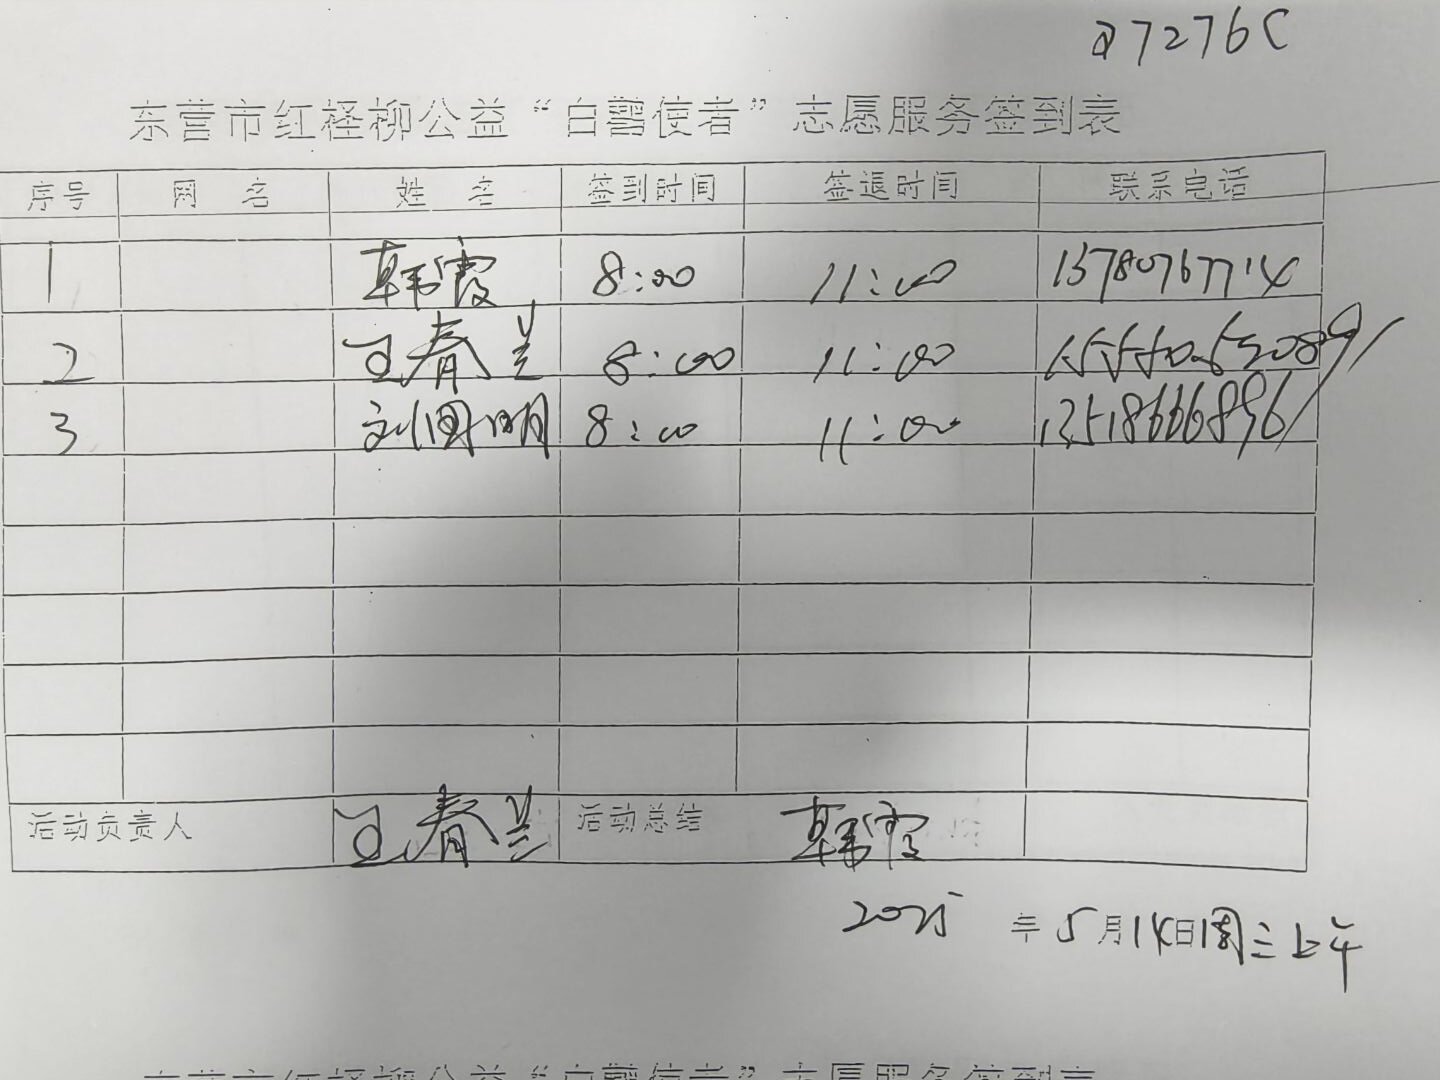 a7276C
东营市红柽柳公益“白鹭使者”志愿服务签到表
序号 网 名 姓 名 签到时间 签退时间 联系电话
1 韩霞 8:00 11:00 13780767714
2 王春兰 8:00 11:00
3 刘国明 8:00 11:00 13518666896
活动负责人 王春兰 活动总结 韩霞
2025 年 5 月 14 日 周三上午
东营市红柽柳公益“白鹭使者”志愿服务签到表